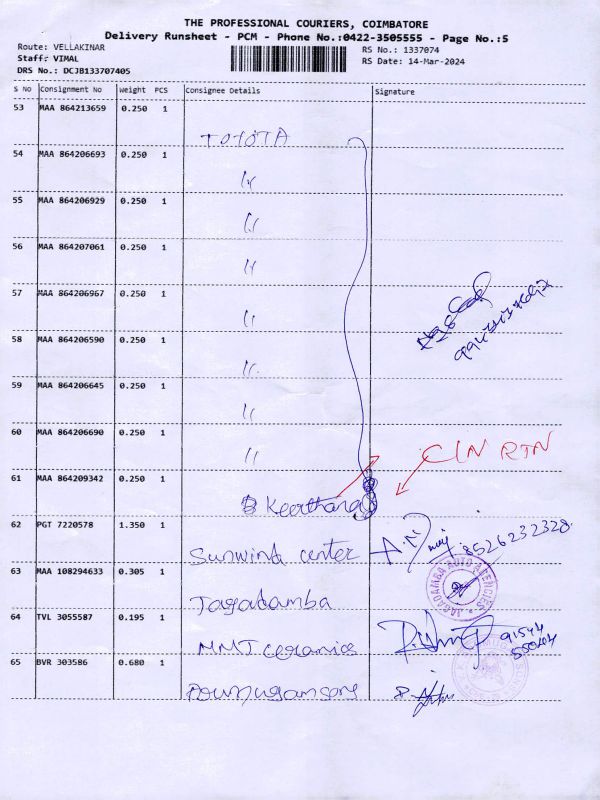 THE PROFESSIONAL COURIERS, COIMBATORE
Delivery Runsheet - PCM - Phone No.:0422-3505555 - Page No.:5
Route: VELLAKINAR
Staff: VIMAL
DRS No.: DCJB133707405
RS No.: 1337074
RS Date: 14-Mar-2024
S No Consignment No Weight PCS Consignee Details Signature
53 MAA 864213659 0.250 1
TOYOTA
54 MAA 864206693 0.250 1
55 MAA 864206929 0.250 1
56 MAA 864207061 0.250 1
57 MAA 864206967 0.250 1
58 MAA 864206590 0.250 1
59 MAA 864206645 0.250 1
60 MAA 864206690 0.250 1
C/N RTN
61 MAA 864209342 0.250 1
Keerthana
62 PGT 7220578 1.350 1
Sunwind center 8526232328
63 MAA 108294633 0.305 1
JAGADAMBA AUTO AGENCIES
Jagadamba
64 TVL 3055587 0.195 1
MMT ceramics
65 BVR 303586 0.680 1